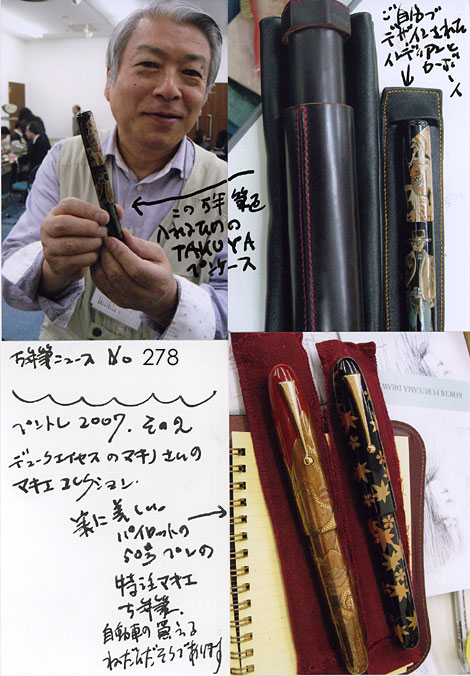 ご自分で
デザインされた
インディアンと
カーボーイ
この万年筆を
入れるための
TAKUYA
ペンケース
万年筆ニュース No 278
ペントレ 2007. その2
デュークエイセスのマキノさんの
マキエコレクション.
実に美しい.
パイロットの
50号ペンの
特注マキエ
万年筆.
自転車の買える
ねだんだそうであります
KOICHI FURUYAMA DRAW